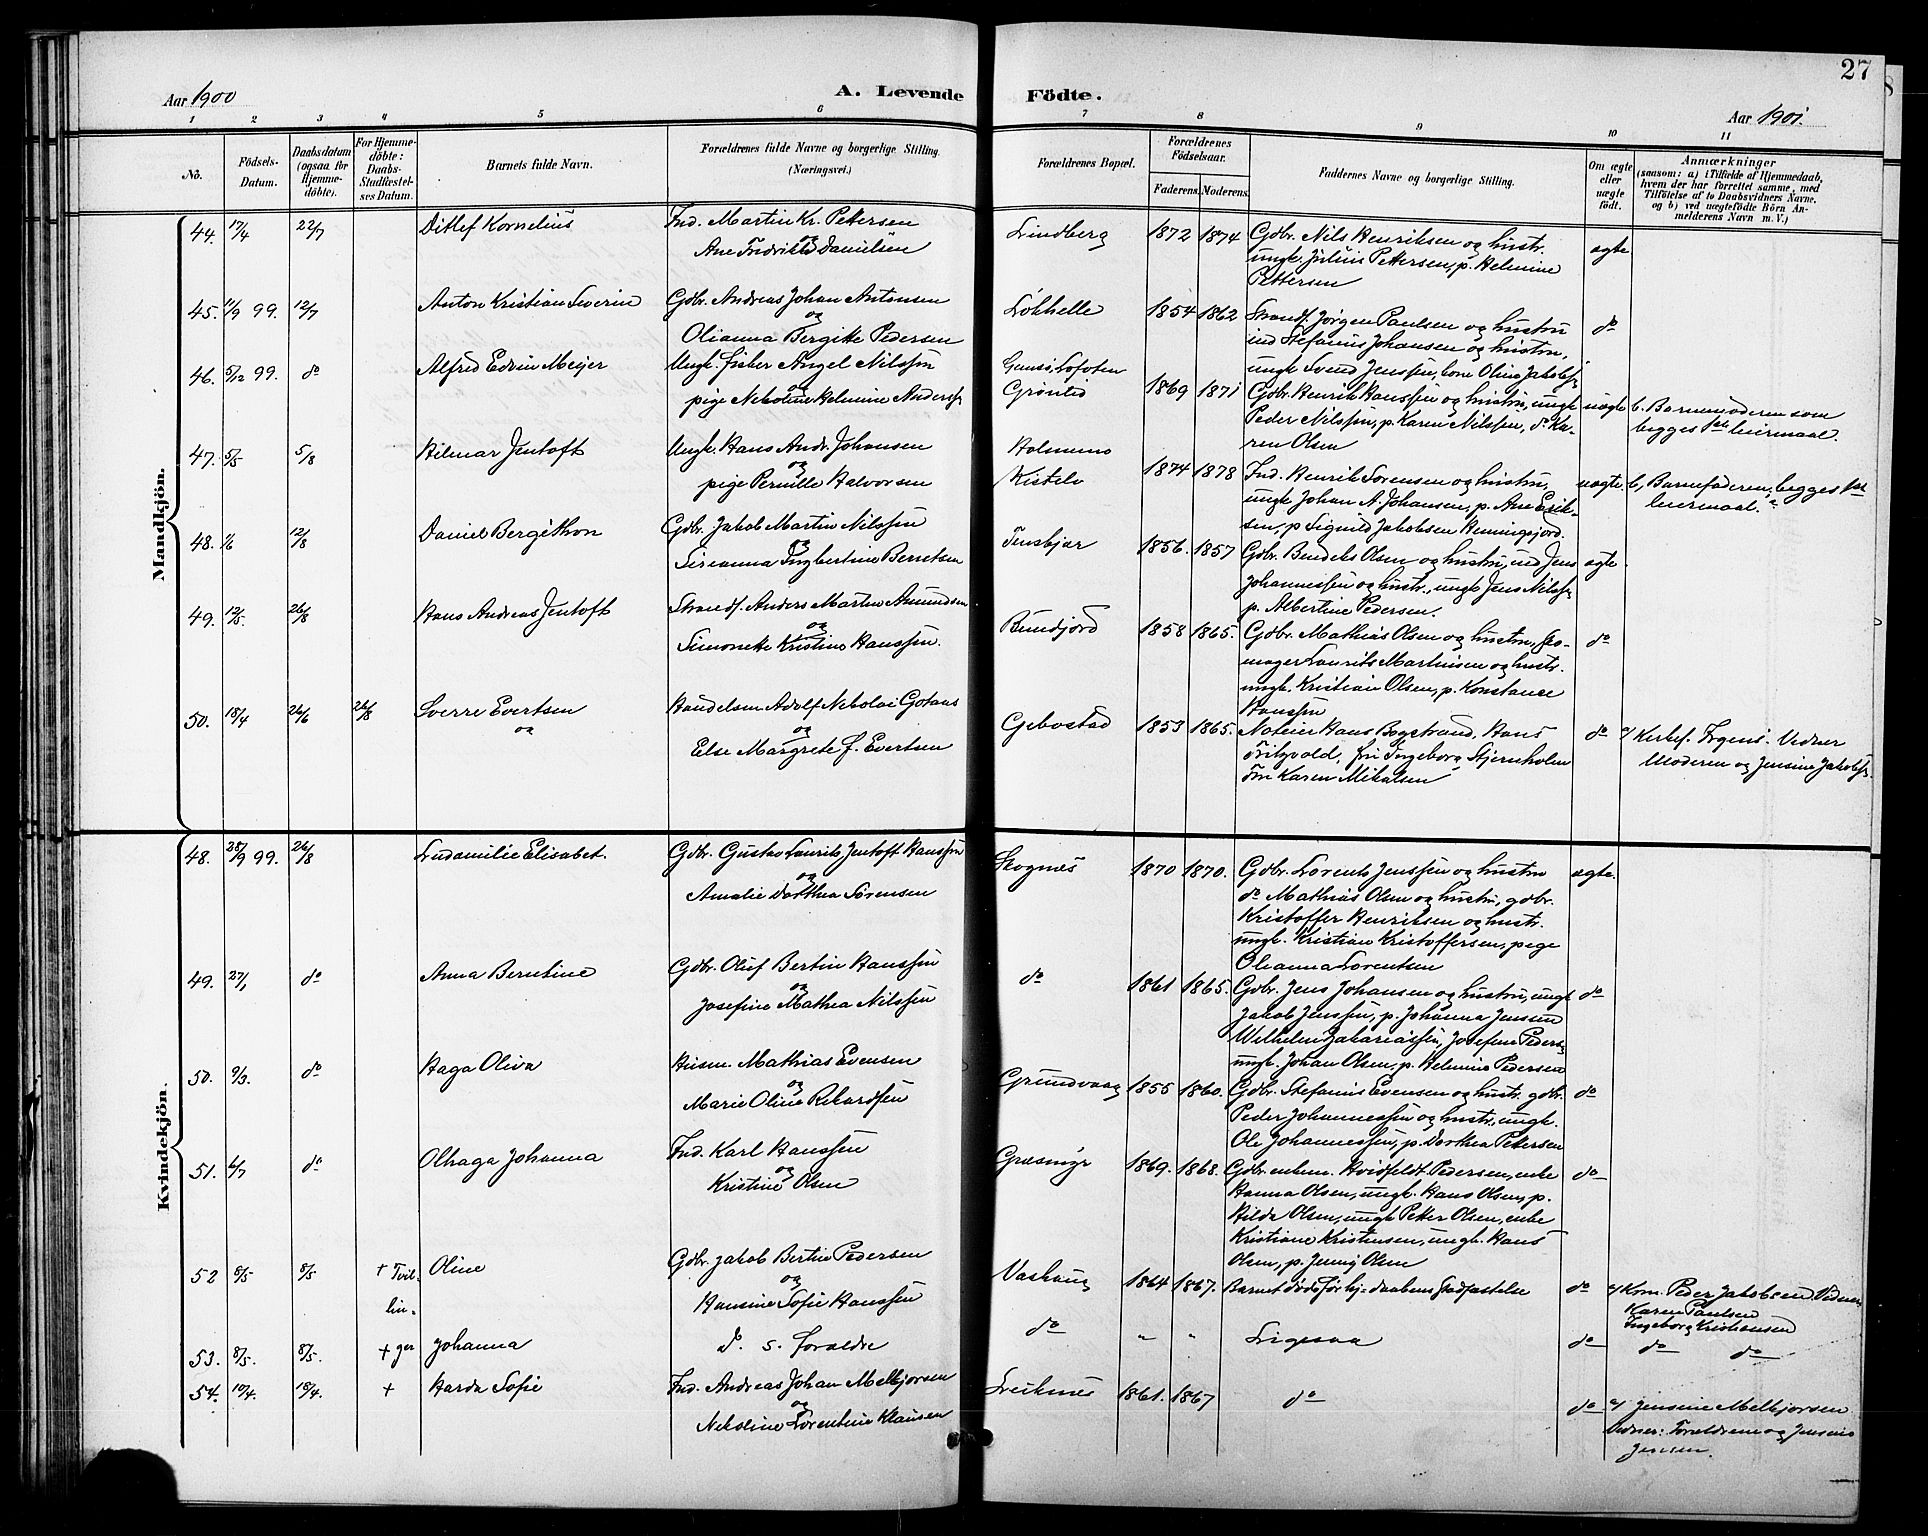 27
Aar 1900
A. Levende
Födte.
Aar 1901.
1 2 3 4 5 6 7 8 9 10 11
No.
Födsels-
Datum.
Daabsdatum
(ogsaa for
Hjemme-
döbte).
For Hjemme-
döbte:
Daabs-
Stadfæstel-
ses Datum.
Barnets fulde Navn.
Forældrenes fulde Navne og borgerlige Stilling.
(Næringsvei.)
Forældrenes Bopæl.
Forældrenes
Födselsaar.
Faderens. Moderens.
Faddernes Navne og borgerlige Stilling.
Om ægte
eller
uægte
födt.
Anmærkninger
(saasom: a) i Tilfælde af Hjemmedaab,
hvem der har forrettet samme, med
Tilföielse af to Daabsvidners Navne,
og b) ved uægtefödte Börn An-
melderens Navn m. V.)
Mandkjön.
44. 17/4 22/7 Ditlef Kornelius Ind. Martin Kr. Pettersen
og
Ane Fredrikke Danielsen
Lindberg 1872 1874 Gdbr. Nils Henriksen og hustr.
ungk. Julius Pettersen, p. Helmine
Pettersen
ægte
45. 11/9 99. 12/7 Anton Kristian Severin Gdbr. Andreas Johan Antonsen
og
Olianna Bergitte Pedersen
Løkhelle 1854 1862 Strands. Jørgen Paulsen og hustru
ind Stefanus Johansen og hustru,
ungk Svend Jenssen, kone Olina Jakobss.
do
46. 5/12 99. do Alfred Edvin Meyer Ungk. fisker Angel Nilssen
og
pige Nekoline Helmine Anderss.
Lofoten
Grøntid 1869 1871 Gdbr. Henrik Hanssen og hustru, ungk
Peder Nilssen, p. Karen Nilssen, do Ka-
ren Olsen
uægte b. Barnemoderen som
begges 1ste leiermaal.
47. 5/5 5/8 Hilmar Jentoft Ungk. Hans Andr. Johansen
og
pige Pernille Halvorsen
Holmenes
Kistelv 1874 1878 Ind. Henrik Sørensen og hustru,
ungk Johan A. Johansen, p. Ane Erik-
sen, p Sigrid Jakobsen Henningsjord.
uægte b, Barnefaderen, begges 1ste
leiermaal.
48. 1/6 12/8 Daniel Bergithon Gdbr. Jakob Martin Nilssen
og
Sirianna Ingbertine Berntsen
Tenskjær 1856. 1857 Gdbr. Bendiks Olsen og hustru, ind Jens
Johannessen og hustr., ungk Jens Nilss.
p. Albertine Pedersen.
ægte.
49. 12/5. 26/8 Hans Andreas Jentoft Strands. Anders Martin Amundsen
og
Simonette Kristine Hanssen.
Bundjord 1858 1865. Gdbr. Mathias Olsen og hustru, sko-
mager Laurits Martinsen og hustr.
ungk. Kristian Olsen, p. Konstance
Hanssen
do
50. 18/4 26/6 26/8 Sverre Evertsen Handelsm. Adolf Nekolai Gotaas
og
Else Margrete f. Evertsen
Gebostad 1853 1865. Hans Bogstrand, Hans
Fritzvold, frú Ingeborg Stjernholm
Frú Karen Mikalsen
do a/ Kirkef. Vidner
Moderen og Jensine Jakobss.
Kvindekjön.
48. 28/9 99. 26/8 Ludamilie Elisabet. Gdbr. Gustav Laurits Jentoft Hanssen
og
Amalie Dorthea Sørensen
Skognes 1870 1870. Gdbr. Lorents Jenssen og hustru
do Mathias Olsen og hustru, gdbr.
Kristoffer Henriksen og hustr.
ungk. Kristian Kristoffersen, pige
Olianna Lorentsen
ægte.
49. 27/1 do Anna Berntine Gdbr. Oluf Bertin Hanssen
og
Josefine Mathea Nilssen
do 1861 1865. Gdbr. Jens Johansen og hustru, ungk
Jakob Jenssen, p. Johanna Jensen
Wilhelm Zakariassen, Josefine Peders.
ungk. Johan Olsen, p. Helmine Pedersen
do
50. 9/3. do Haga Oliva Husm. Mathias Evensen
og
Marie Oline Rikardsen
Grundvaag 1855 1860. Gdbr. Stefanus Evensen og hustr. gdbr.
Peder Johannessen og hustr., ungk.
Ole Johannessen, p. Dorthea Pettersen
do
51. 6/7 do Olhaga Johanna Ind. Karl Hanssen
og
Kristine Olsen
Græsmyr 1869. 1868. Gdbr. enkem. Hvidfeldt Pedersen, enke
Hanna Olsen, ungk. Hans Olsen, p.
Hilda Olsen, ungk Petter Olsen, enke
Kristiane Kristensen, ungk. Hans
Olsen, p. Jenny Olsen
do
52 8/5 8/5 + Tvil-
lin-
Oline Gdbr. Jakob Bertin Pedersen
og
Hansine Sofie Hanssen
Vashaug 1864 1867. Barnet døde før hj-daabens Stadfæstelse do a/ Kone Peder Jakobsen. Vidner
Karen Paulsen
Ingeborg Kristiansen
53. 8/5. 8/5. + ger Johanna D. s. foraldre do " " Ligesaa do do do
54. 10/4. 18/4. + Harda Sofie Ind. Andreas Johan Melkjorsen
og
Nikoline Lorentine Klausen
Leiknes 1861. 1867 do do a/ Jensine Melkjorsen
Vidner: Forældrene og Jensine
Jensen.